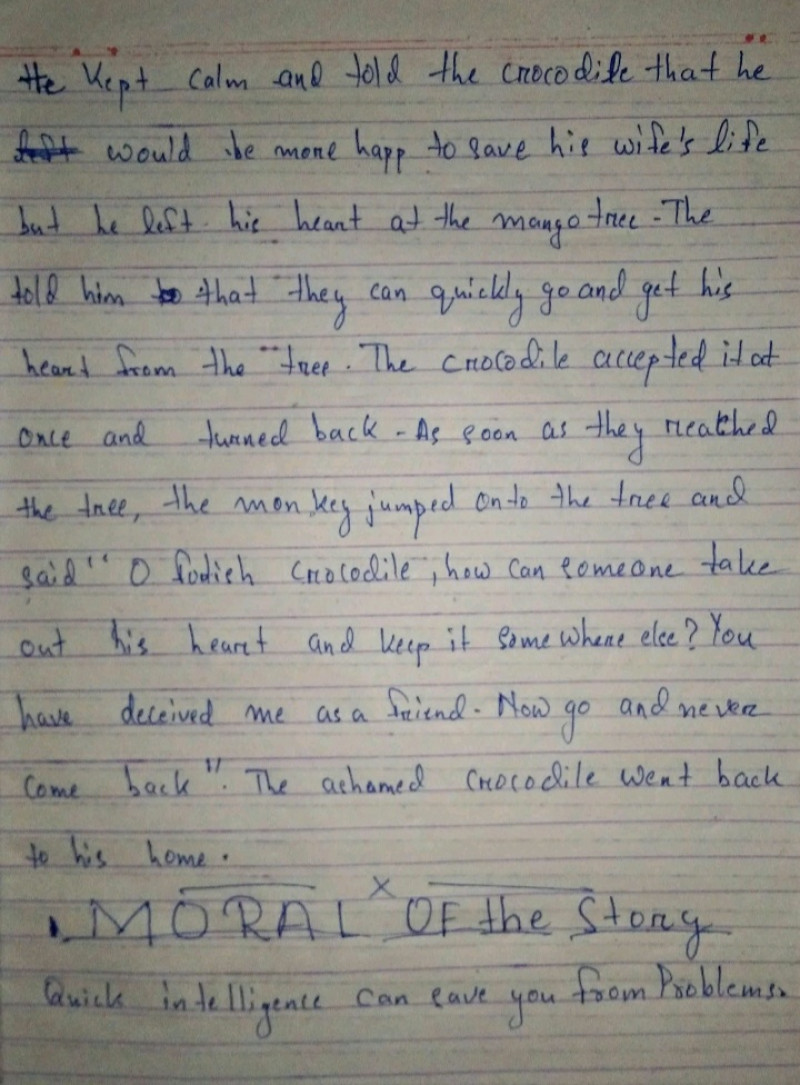 He Kept Calm and told the crocodile that he
left would be more happ to save his wife's life
but he left his heart at the mango tree - The
told him to that they can quickly go and get his
heart from the tree. The crocodile accepted it at
once and turned back - As soon as they reached
the tree, the monkey jumped onto the tree and
said " O fodish Crocodile, how can someone take
out his heart and keep it somewhere else? You
have deceived me as a friend - Now go and never
come back". The ashamed crocodile went back
to his home.
x
MORAL OF the Story
Quick intelligence can save you from Problems.